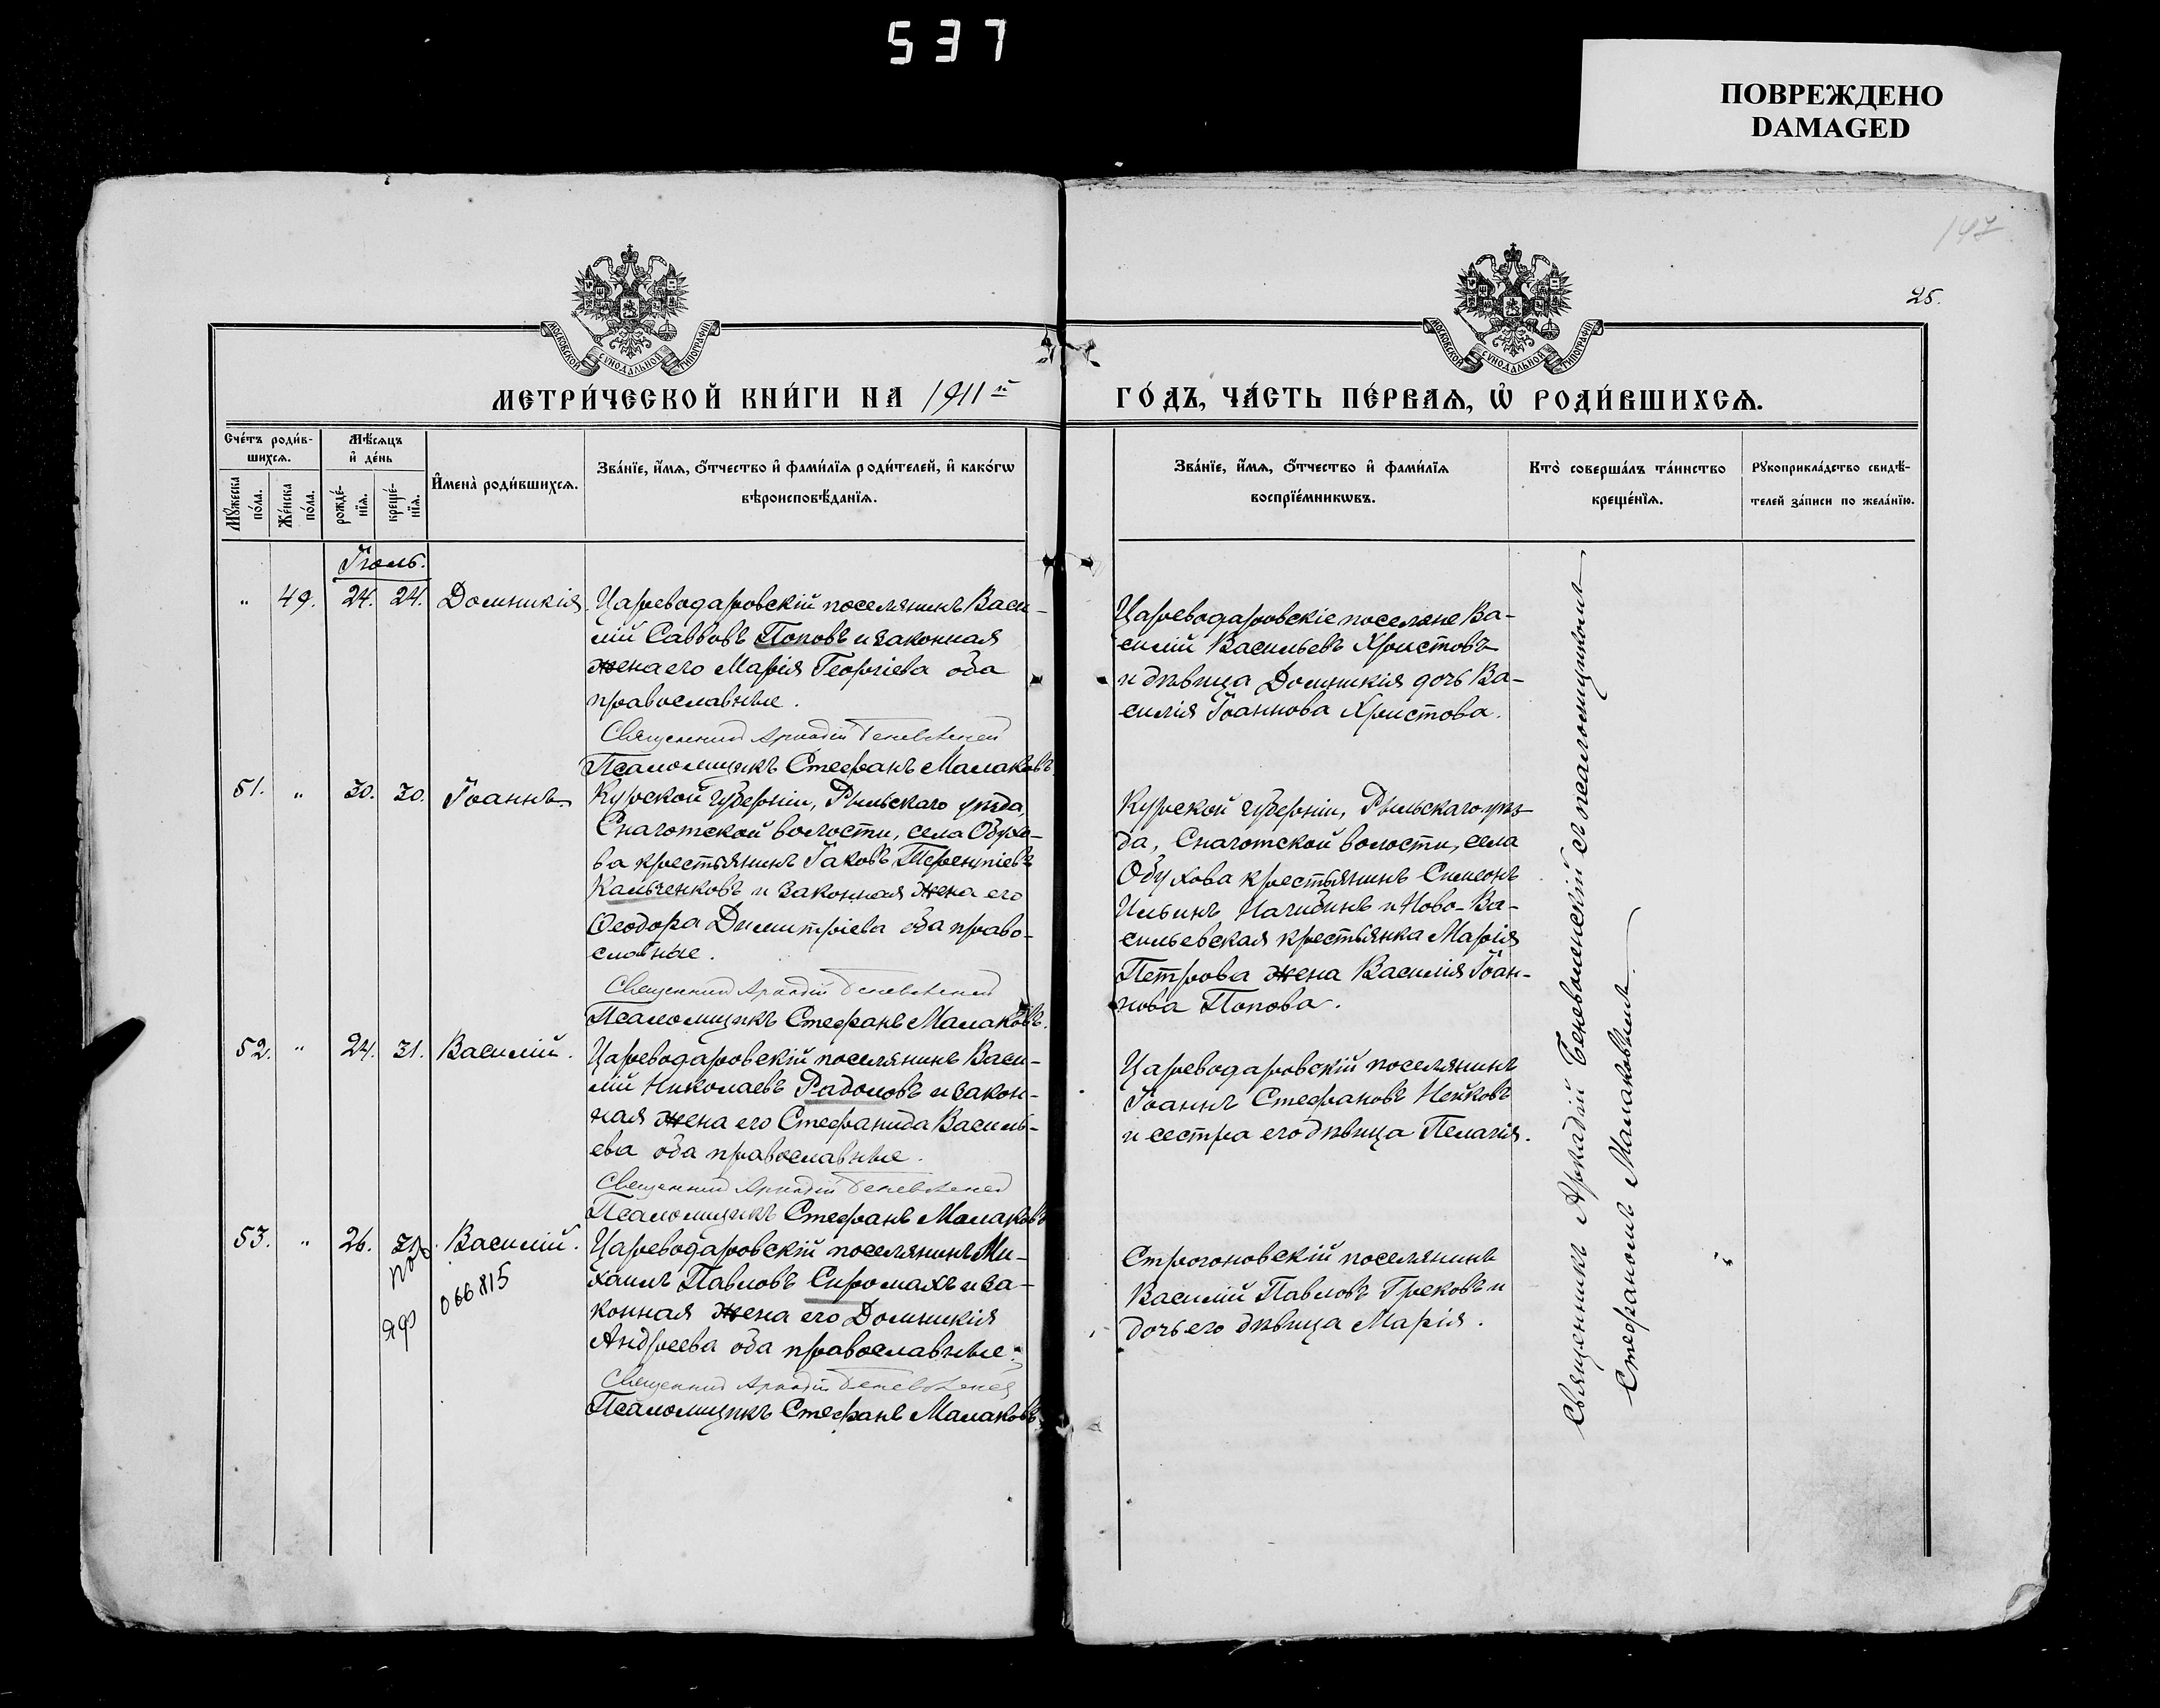 537
ПОВРЕЖДЕНО
DAMAGED
147
25.
МОСКОВСКОЙ СѴНОДАЛЬНОЙ ТИПОГРАФІИ
МОСКОВСКОЙ СѴНОДАЛЬНОЙ ТИПОГРАФІИ
МЕТРИ́ЧЕСКОЙ КНИ́ГИ НА 1911й
ГО́ДЪ, ЧА́СТЬ ПЕ́РВАѦ, Ѡ҆ РОДИ́ВШИХСѦ.
Сче́тъ роди́в-
шихсѧ.
Мꙋ́жеска по́ла.
Же́нска по́ла.
Мѣ́сѧцъ
и҆ де́нь
рожде́-
нїѧ.
креще́-
нїѧ.
И҆мена̀ роди́вшихсѧ.
Зва́нїе, и҆́мѧ, ѻ҆́тчество и҆ фами́лїѧ роди́телей, и҆ како́гѡ
вѣроисповѣ́данїѧ.
Зва́нїе, и҆́мѧ, ѻ҆́тчество и҆ фами́лїѧ
воспрїе́мникѡвъ.
Кто̀ соверша́лъ та́инство
креще́нїѧ.
Рꙋкоприкла́дство свидѣ́-
телей за́писи по жела́нїю.
Іюль.
" 49. 24. 24. Домникія. Цареводаровскій поселянинъ Васи-
лій Саввовъ Поповъ и законная
жена его Марія Георгіева оба
православные.
Священникъ Аркадій Беневоленскій
Псаломщикъ Стефанъ Малаковъ.
Цареводаровскіе поселяне Ва-
силій Васильевъ Христовъ
и дѣвица Домникія дочь Ва-
силія Іоаннова Христова.
51. " 30. 30. Іоаннъ. Курской губерніи, Рыльскаго уѣзда,
Снаготской волости, села Обухо-
ва крестьянинъ Іаковъ Терентіевъ
Кальченковъ и законная жена его
Ѳеодора Димитріева оба право-
славные.
Священникъ Аркадій Беневоленскій
Псаломщикъ Стефанъ Малаковъ.
Курской губерніи, Рыльскаго уѣз-
да, Снаготской волости, села
Обухова крестьянинъ Симеонъ
Ильинъ Нагибинъ и Ново-Ва-
сильевская крестьянка Марія
Петрова жена Василія Іоан-
нова Попова.
52. " 24. 31. Василій. Цареводаровскій поселянинъ Васи-
лій Николаевъ Радоловъ и закон-
ная жена его Стефанида Василь-
ева оба православные.
Священникъ Аркадій Беневоленскій
Псаломщикъ Стефанъ Малаковъ
Цареводаровскій поселянинъ
Іоаннъ Стефановъ Нейковъ
и сестра его дѣвица Пелагія.
53. " 26. 31. Василій. Цареводаровскій поселянинъ Ми-
хаилъ Павловъ Сиромахъ и за-
конная жена его Домникія
Андреева оба православные.
Священникъ Аркадій Беневоленскій
Псаломщикъ Стефанъ Малаковъ
066815
Строгоновскій поселянинъ
Василій Павловъ Грековъ и
дочь его дѣвица Марія.
Священникъ Аркадій Беневоленскій съ псаломщикомъ
Стефаномъ Малаковымъ.